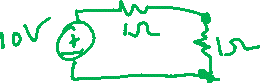 10V
+
1Ω
1Ω